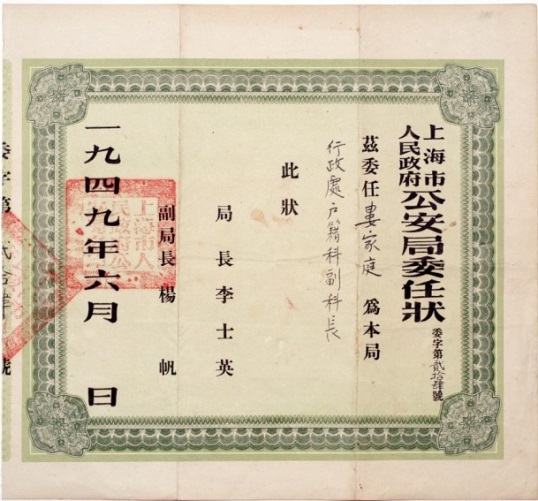 上海市
人民政府公安局委任狀
委字第貳拾肆號
茲委任婁家庭爲本局
行政處户籍科副科長
此狀
局長李士英
副局長楊帆
一九四九年六月 日
上海市人
民政府公
委字第貳拾肆號